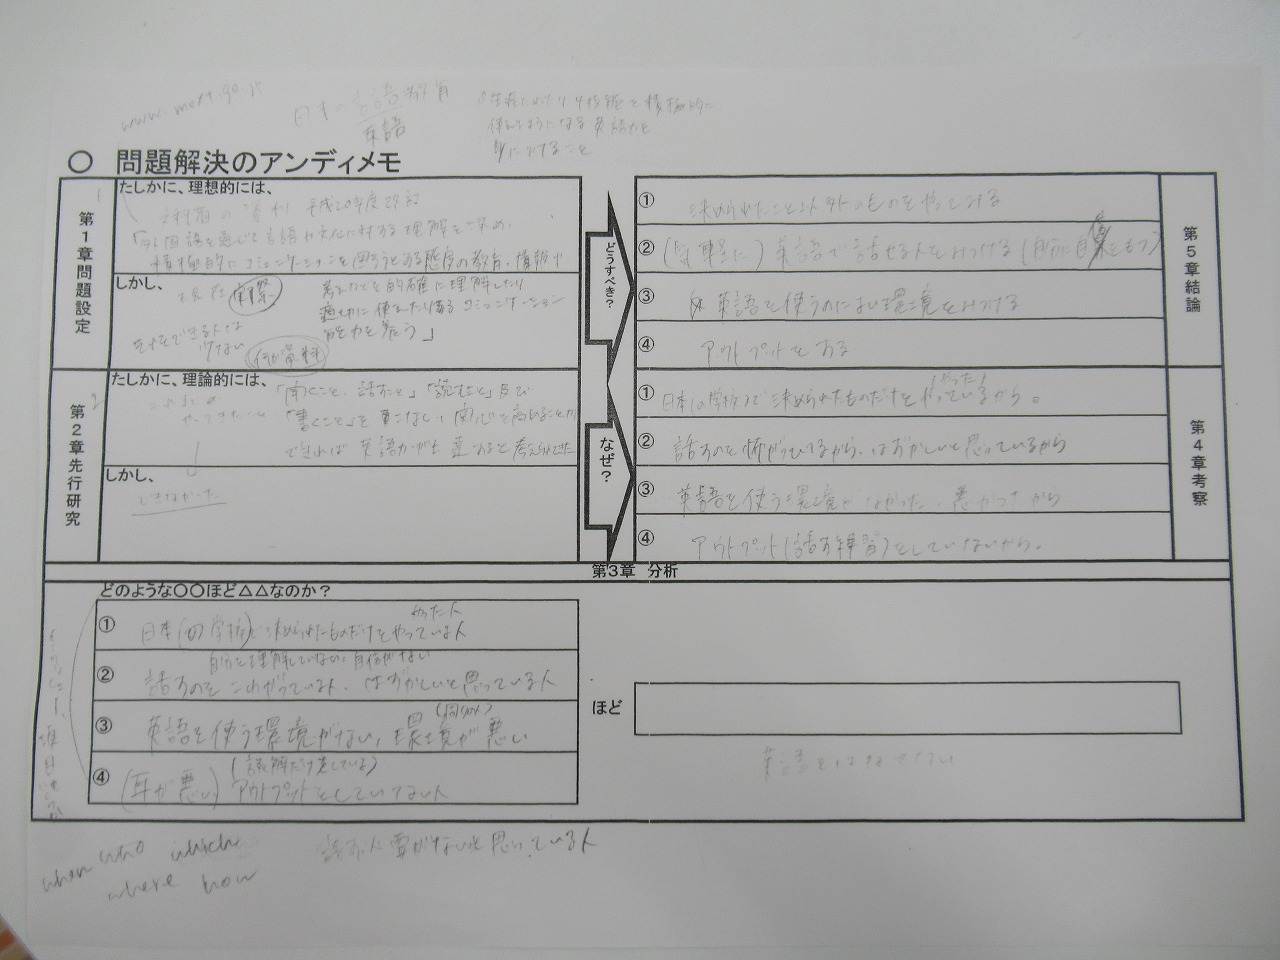 www.mext.go.jp
日本の言語教育
英語
生涯にわたり4技能を積極的に
使えるようになる英語力を
身につけること
〇 問題解決のアンディメモ
第1章問題設定
1
たしかに、理想的には、
平成20年度改訂
「外国語を通じて言語や文化に対する理解を深め、
積極的にコミュニケーションを図ろうとする態度の教育、情報や
しかし、
現在
実際
考えなどを的確に理解したり
適切に使えたりするコミュニケーション
能力を養う」
それをできる人は
少ない
何か資料
第2章先行研究
2
たしかに、理論的には、
「聞くこと、話すこと」「読むこと」及び
「書くこと」を
関心を高めることが
できれば 英語力が
考えられてきた
やってきたこと
しかし、
できなかった
どうすべき?
なぜ?
第5章結論
① 決められたこと以外のものをやってみる
② (気軽に) 英語で話せる人をみつける (自分に自信をもつ)
③ 英語を使うのによい環境をみつける
④ アウトプットをする
第4章考察
① 日本の(学校)で決められたものだけをやっているから。
(やった)
② 話すのを怖がっているから、はずかしいと思っているから
③ 英語を使う環境がなかった、悪かったから
④ アウトプット(話す練習)をしていないから。
第3章 分析
どのような〇〇ほど△△なのか?
やった人
① 日本(の学校)で決められたものだけをやっている人
自分を理解していない、自信がない
② 話すのをこわがっている人、はずかしいと思っている人
(周りの人)
③ 英語を使う環境がない、環境が悪い
(読解だけ
④ (耳が悪い) アウトプットをしていない人
ほど
英語をはなせない
when who which
where how
話す必要がないと思っている人